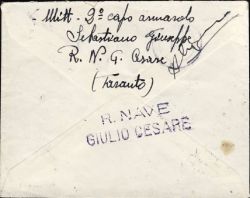 Mitt = 2º capo armarolo
Sebastiano Giuseppe
R. N. G. Cesare
(Taranto)
R. NAVE
GIULIO CESARE